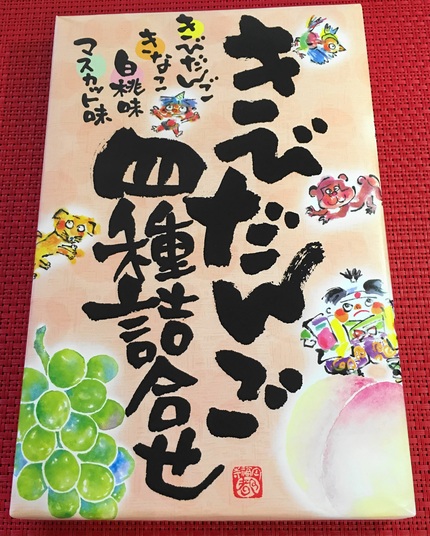 きびだんご
四種詰合せ
きびだんご
きなこ
白桃味
マスカット味